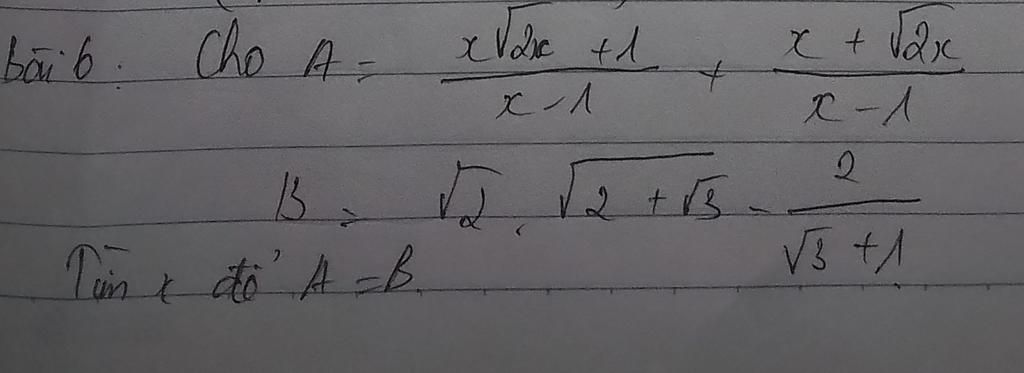 Bài 6: Cho A = \frac{x\sqrt{2x} + 1}{x - 1} + \frac{x + \sqrt{2x}}{x - 1}
B = \sqrt{2} . \sqrt{2 + \sqrt{3}} - \frac{2}{\sqrt{3} + 1}
Tìm x để A = B.